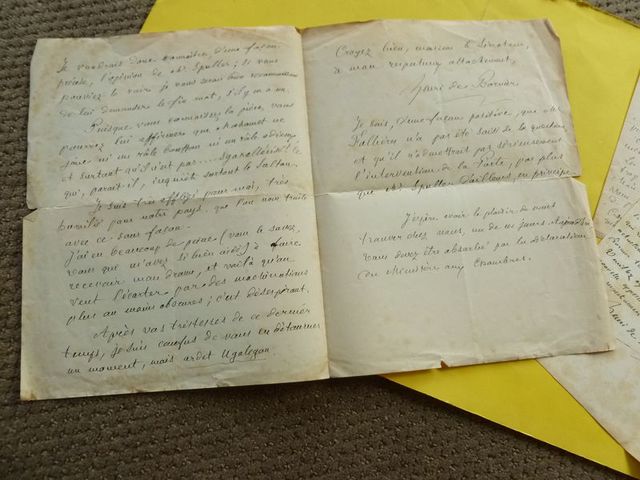 Je voudrais donc connaître, d'une façon
précise, l'opinion de Mr. Spuller; si vous
pouviez le voir, je vous serais bien reconnaissant
de lui demander le fin mot, s'il y en a un.
Puisque vous connaissez la pièce, vous
pourrez lui affirmer que Mahomet ne
joue ni un rôle bouffon ni un rôle odieux
et surtout qu'il n'est pas
qui, paraît-il, inquiète surtout le Sultan.
Je suis très affligé pour moi, très
humilié pour notre pays, que l'on nous traite
avec ce sans façon.
J'ai eu beaucoup de peine (vous le savez,
vous qui m'avez si bien aidé) à faire
recevoir mon drame, et voilà qu'on
veut l'écarter par des machinations
plus ou moins obscures; c'est désespérant.
Après vos tristesses de ce dernier
temps, je suis confus de vous en détourner
un moment, mais ardet Ucalegon.
Croyez bien, monsieur le Sénateur,
à mon respectueux attachement,
Henri de Bornier
Je sais, d'une façon positive, que Mr
Fallières n'a pas été saisi de la question
et qu'il n'admettrait pas sérieusement
l'intervention de la Porte, pas plus
que Mr. Spuller d'ailleurs, en principe.
J'espère avoir le plaisir de vous
trouver chez vous, un de ces jours.
Vous devez être absorbé par la déclaration
du Ministère aux Chambres.